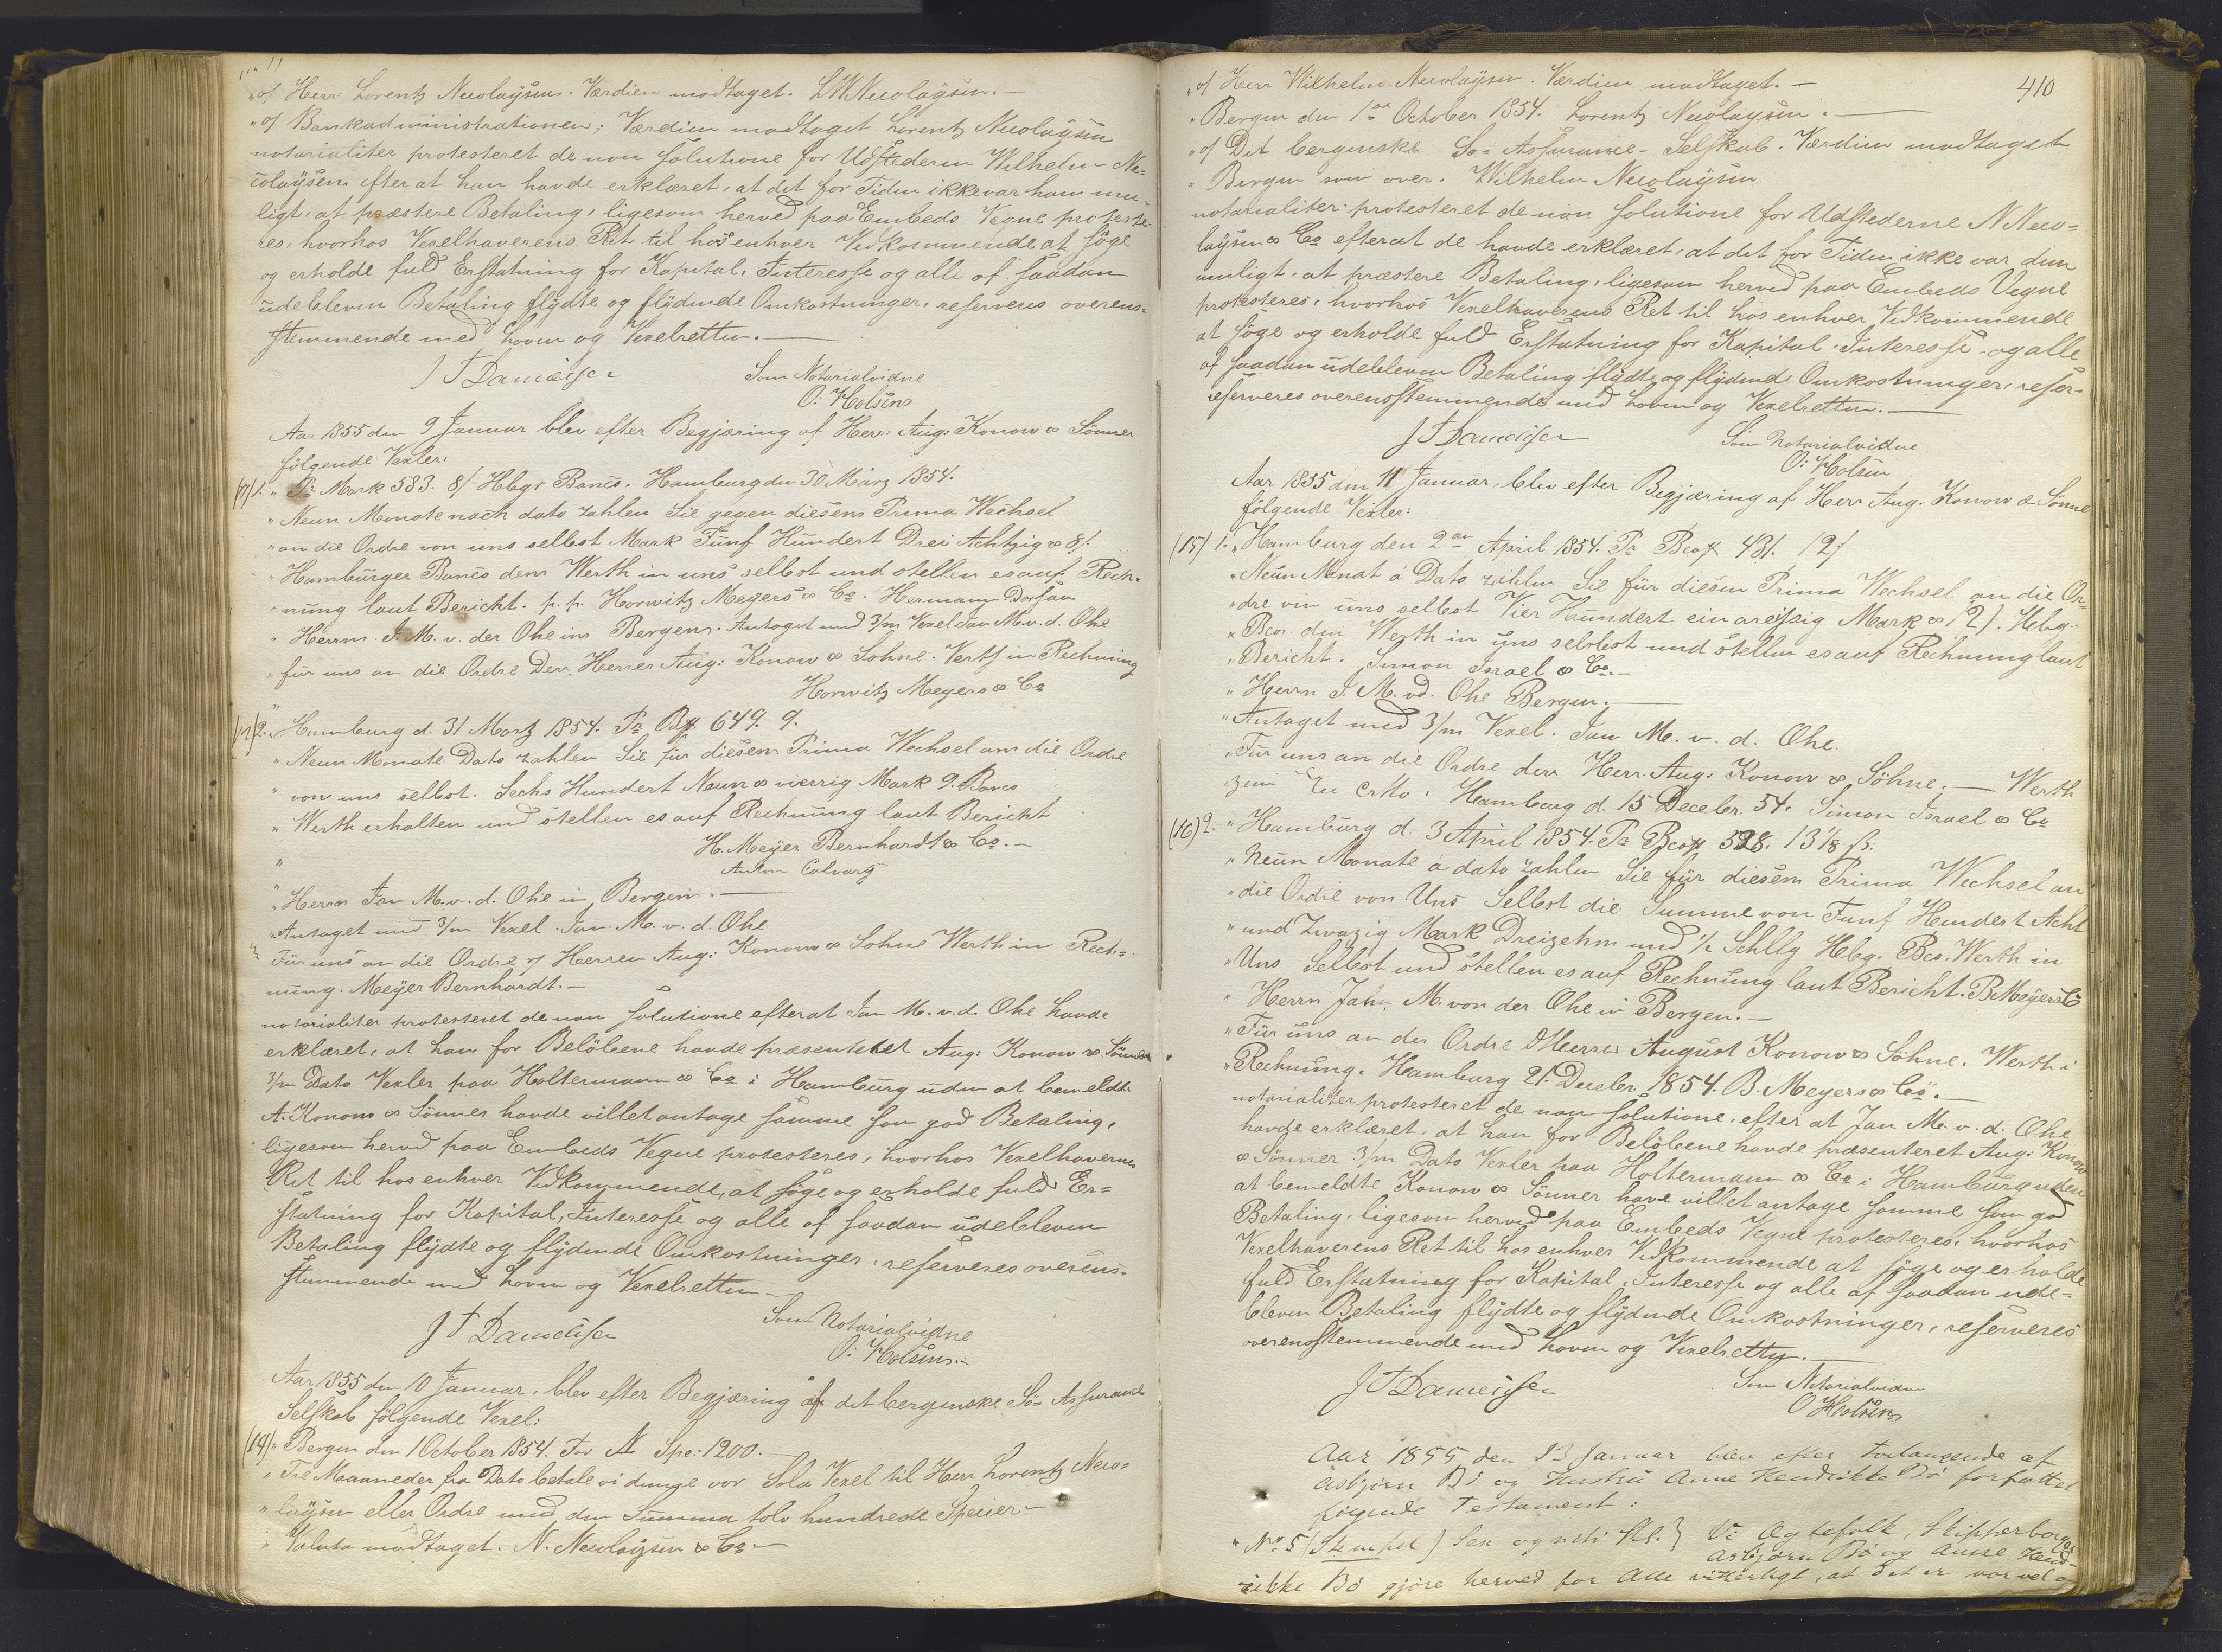 "of Herr Lorentz Nicolaÿsen. Værdien modtaget. L W Nicolaÿsen. —
"of Bankadministrationen; Værdien modtaget Lorentz Nicolaÿsen
notarialiter protesteret de non solutione for Udstederen Wilhelm Ni=
colaÿsen efterat han havde erklæret, at det for Tiden ikke var ham mu-
ligt, at præstere Betaling, ligesom herved paa Embeds Vegne proteste-
res, hvorhos Vexelhaverens Ret til hos enhver Vedkommende at söge
og erholde fuld Erstatning for Kapital, Interesse og alle af saadan
udebleven Betaling flÿdte og flÿdende Omkostninger, reserveres overens=
stemmende med Loven og Vexelretten. —
J T Danielsen Som Notarialvidne
O: Holsen
Aar 1855 den 9 Januar blev efter Begjæring af Herr: Aug: Konow & Sönner
fölgende Vexler:
1. " Pr Mark 583. 8/ Hbgr Banco. Hamburg den 30 März 1854.
" Neun Monate nach dato zahlen Sie gegen diesem Prima Wechsel
" an die Ordre von uns selbst Mark Fünf Hundert Drei Achtzig & 8/.
" Hamburger Banco dem Werth in uns selbst und stellen es auf Rech-
" nung laut Bericht. p. pr. Horwitz Meyers & Co. Hermann
" Herrn J. M. v. der Ohe in Bergen. Antaget med 3/m Vexel Jan M. v. d. Ohe
" für uns an die Ordre Der Herren Aug: Konow & Sohne. Verth in Rechnung
" Horwitz Meyers & Co
2. " Hamburg d. 31 Martz 1854. Pr B 649. 9.
" Neun Monate Dato zahlen Sie für diesem Prima Wechsel an die Ordre
" von uns selbst. Sechs Hundert Neun & vierzig Mark 9. Banco
" Werth erhalten und stellen es auf Rechnung laut Bericht
" H. Meÿer Bernhardt & Co. —
" Anton Calvarÿ
" Herrn Jan M. v. d. Ohe in Bergen. —
" Antaget med 3/m Vexel. Jan. M. v. d. Ohe
" Für uns an die Ordre of Herren Aug: Konow & Sohne Werth in Rech=
nung. Meÿer Bernhardt. —
notarialiter protesteret de non solutione efterat Jan M. v. d. Ohe havde
erklæret, at han for Belöbene havde præsenteret Aug: Konow & Sönner
3/m Dato Vexler paa Holtermann & Co i Hamburg uden at bemeldte
A. Konow & Sönner havde villet antage samme som god Betaling,
ligesom herved paa Embeds Vegne protesteres, hvorhos Vexelhaverens
Ret til hos enhver Vedkommende, at söge og erholde fuld Er=
statning for Kapital, Interesse og alle af saadan udebleven
Betaling flÿdte og flÿdende Omkostninger, reserveres overens-
stemmende med Loven og Vexelretten. —
J T Danielsen Som Notarialvidne
O: Holsen. —
Aar 1855 den 10 Januar, blev efter Begjæring af det bergenske Sö= Assurance
Selskab fölgende Vexel:
(14) " Bergen den 1 October 1854. For Spe: 1200. —
" Tre Maaneder fra Dato betale vi denne vor Sola Vexel til Herr Lorentz Nico=
" laÿsen eller Ordre med den Summa tolv hundrede Specier —
" Valuta modtaget. N. Nicolaÿsen & Co —
410
" of Herr Wilhelm Nicolaÿsen. Værdien modtaget. —
" Bergen den 1ste October 1854. Lorentz Nicolaysen. —
" of Det bergenske So= Assurance- Selskab. Værdien modtaget
" Bergen som over. Wilhelm Nicolaÿsen
notarialiter protesteret de non solutione for Udstederne N Nico=
laÿsen & Co efterat de havde erklæret, at det for Tiden ikke var dem
muligt, at præstere Betaling, ligesom herved paa Embeds Vegne
protesteres, hvorhos Vexelhaverens Ret til hos enhver Vedkommende
at söge og erholde fuld Erstatning for Kapital, Interesse og alle
af saadan udebleven Betaling flÿdte og flÿdende Omkostninger, reser-
reserveres overensstemmende med Loven og Vexelretten. —
J T Danielsen Som Notarialvidne
O: Holsen
Aar 1855 den 11 Januar, blev efter Begjæring af Herr Aug. Konow & Sönne
fölgende Vexler:
(15) 1. " Hamburg den 2 April 1854. Pr Bco 431. 12/
" Neun Monat á Dato zahlen Sie für diesen Prima Wechsel an die Or=
" dre von uns selbst Vier Hundert ein dreißig Mark & 12/. Hbg.
" Bco. den Werth in uns selbst und stellen es auf Rechnung laut
" Bericht. Simon Israel & Co. —
" Herrn J. M. vd. Ohe Bergen. —
" Antaget med 3/m Vexel. Jan M. v. d. Ohe.
" Für uns an die Ordre der Herr. Aug: Konow & Söhne. — Werth
Hamburg d. 15 Decebr. 54. Simon Israel & Co
(16) 2. " Hamburg d. 3 April 1854. Pr Bco 528. 13 1/8 ß.
" Neun Monate a dato zahlen Sie für diesem Prima Wechsel an
" die Ordre von Uns Selbst die Summe von Funf Hundert Acht
" und Zwazig Mark Dreizehn und 1/2 Schllg Hbg. Bco. Werth in
" Uns Selbst und stellen es auf Rechnung laut Bericht. B. Meÿers & Co
" Herrn Jahn M. von der Ohe in Bergen. —
" Für uns an der Ordre d Herren August Konow & Söhne. Werth i
" Rechnung. Hamburg 21. Decebr. 1854. B. Meyers & Co. —
notarialiter protesteret de non solutione, efter at Jan M. v. d. Ohe
havde erklæret, at han for Belöbene havde præsenteret Aug: Konow
& Sönner 3/m Dato Vexler paa Holtermann & Co i Hamburg uden
at bemeldte Konow & Sönner have villet antage samme som god
Betaling, ligesom herved paa Embeds Vegne protesteres, hvorhos
Vexelhaverens Ret til hos enhver Vedkommende at söge og erholde
fuld Erstatning for Kapital, Interesse og alle af saadan ude=
bleven Betaling flÿdte og flÿdende Omkostninger, reserveres
overensstemmende med Loven og Vexelretten. —
J T Danielsen Som Notarialvidne
O Holsen
Aar 1855 den 13 Januar blev efter Forlangende af
Asbjørn Bö og Hustru Anne Hendrikke Bö forfattet
følgende Testament:
" No 5 (Stempel) Sex og neti Skl. } Vi Ægtefolk, Skipperborger
Asbjørn Bö og Anne Hend-
rikke Bö gjøre herved for Alle vitterligt, at det er vor vel o